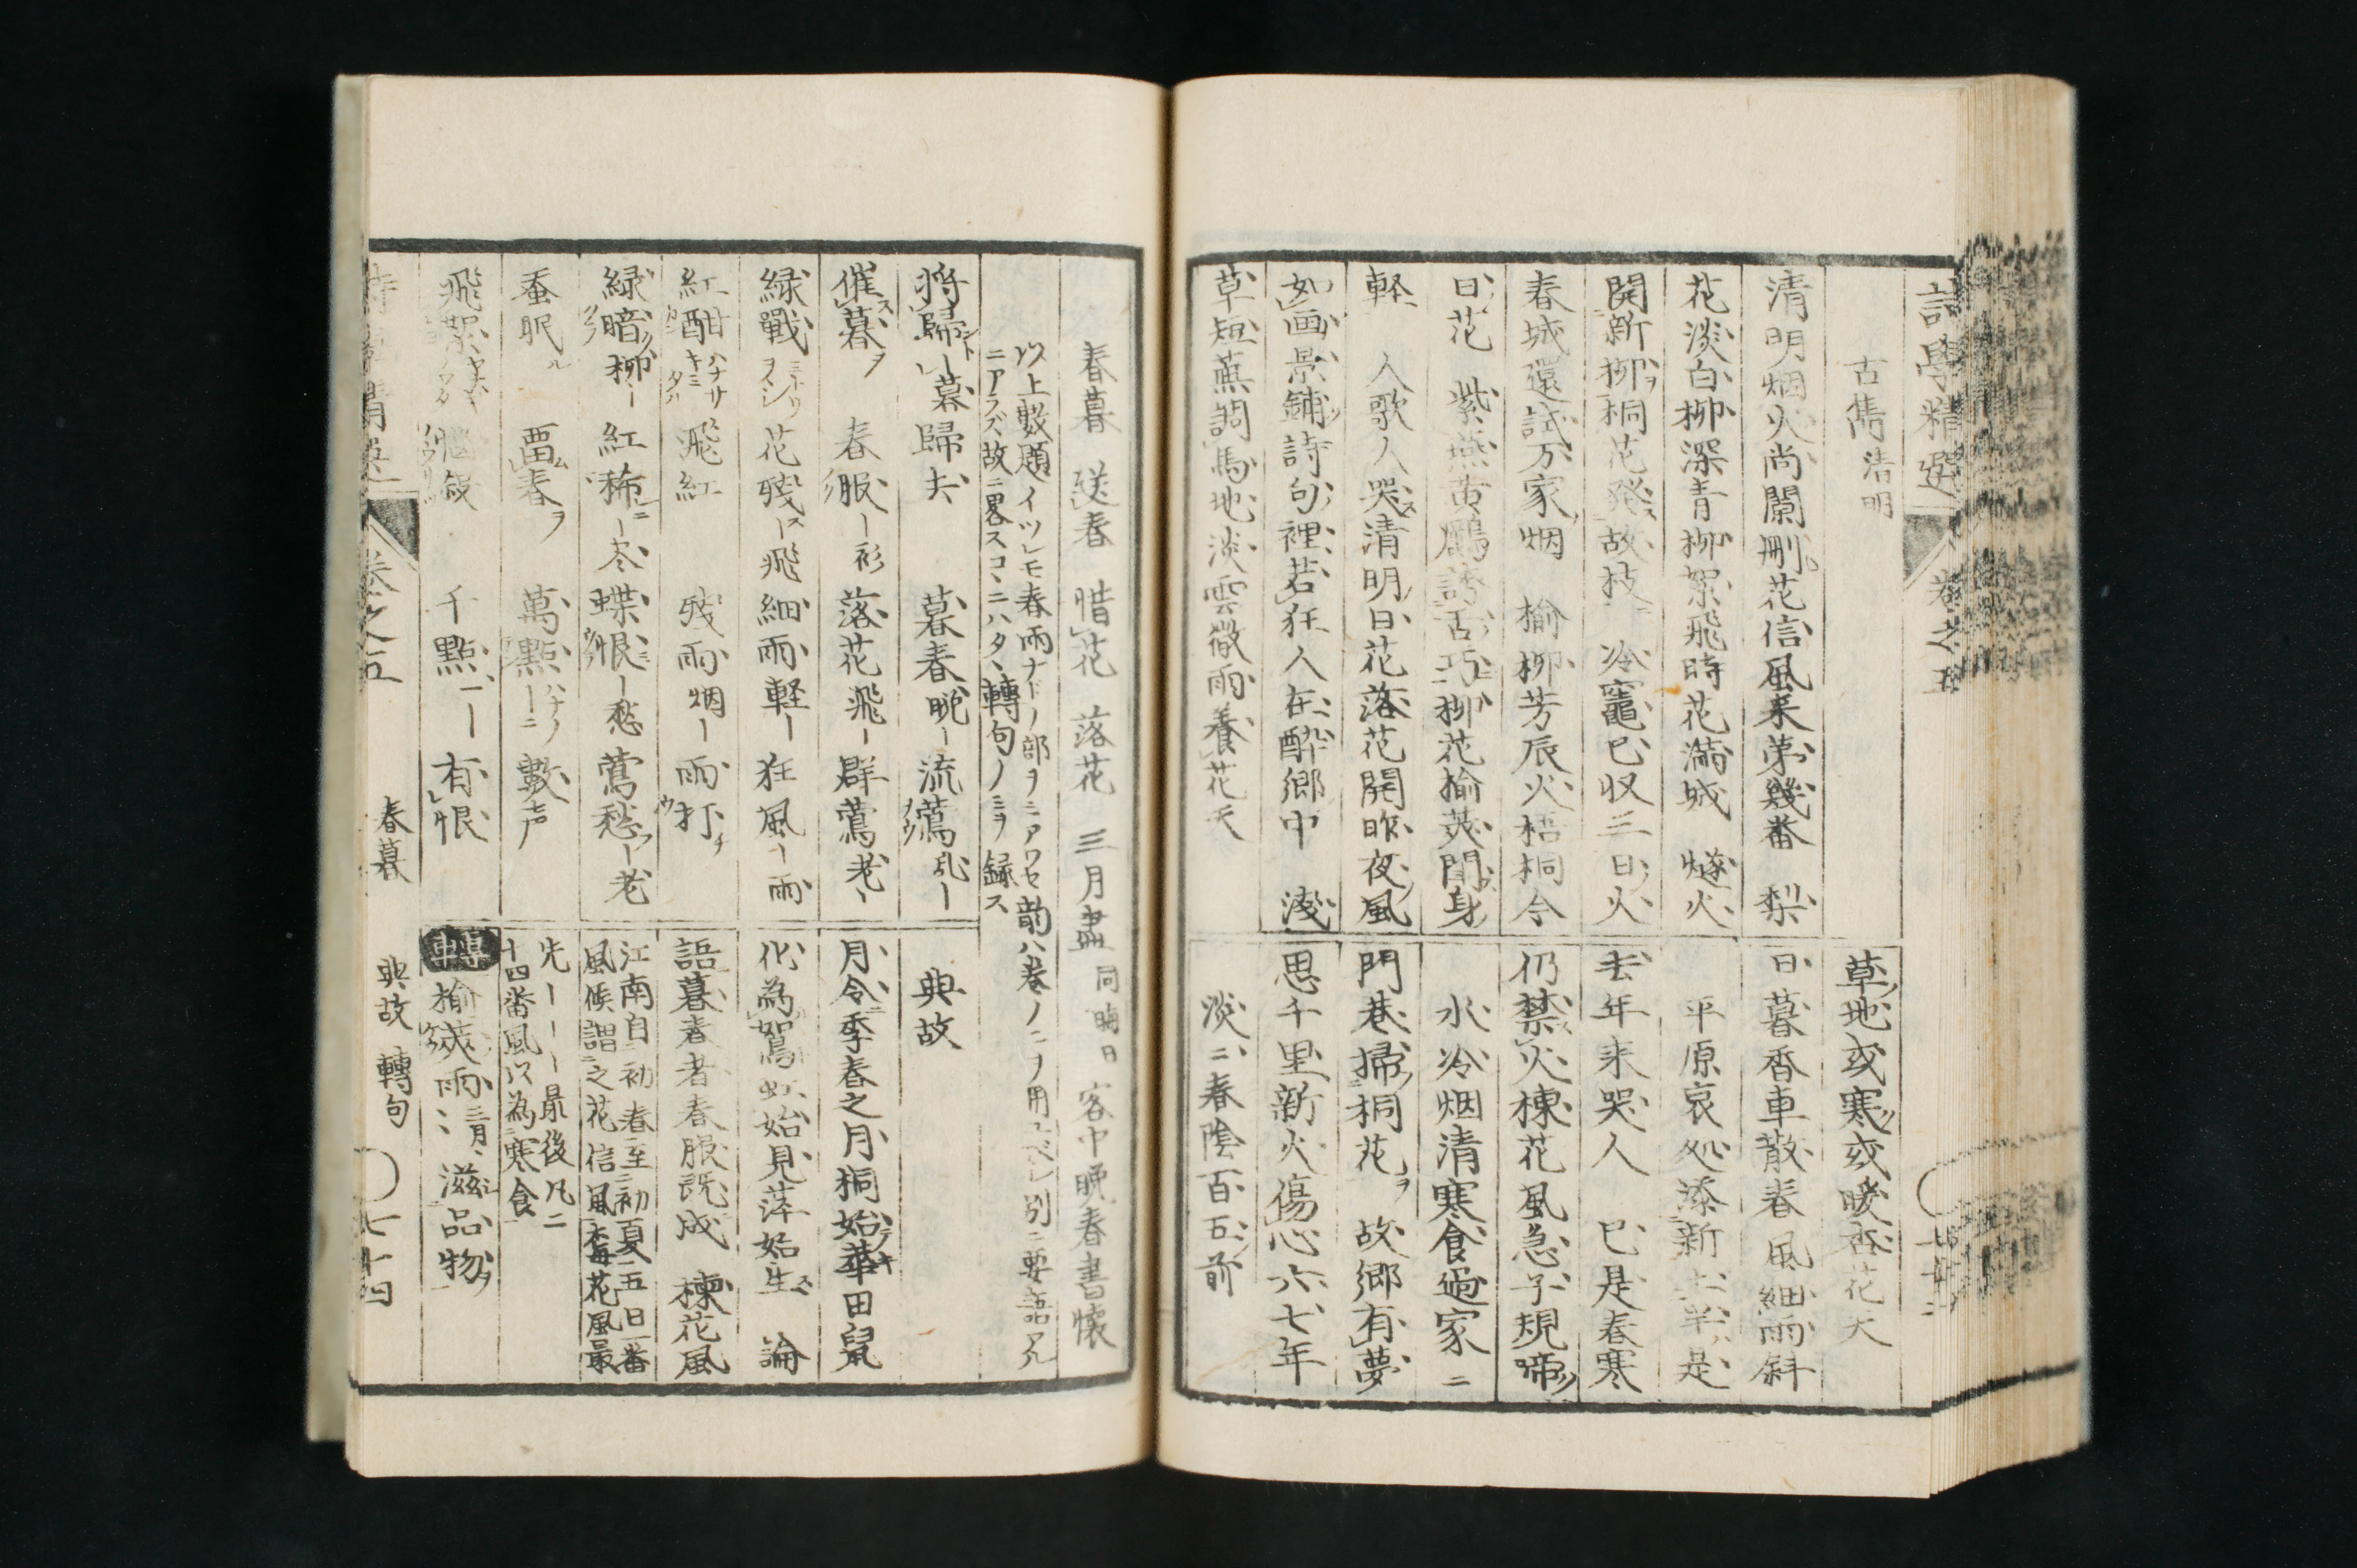 詩學精選 巻之五
古雋 清明
清明烟火尚闌刪花信風来第幾番 梨
花淡白柳深青柳絮飛時花満城 燧火
開新柳桐花発故枝 冷竈已収三日火
春城還試万家烟 榆柳芳辰火梧桐今
日花 紫燕黄鸝誘舌巧柳花揄莢閙身
軽 人歌人哭清明日花落花開昨夜風
如画景鋪詩句裡若狂人在酔郷中 浅
草短蕪調馬地淡雲微雨養花天
草地或寒或暖杏花天
日暮香車散春風細雨斜
平原哀処添新土半是
去年来哭人 已是春寒
仍禁火楝花風急子規啼
水冷烟清寒食過家ニ
門巷掃桐花 故郷有夢
思千里新火傷心六七年
淡ニ春陰百五前
春暮 送春 惜花 落花 三月盡 同時日 客中晩春書懐
以上數題イツレモ春雨ナドノ部ヲミアワセ韵ハ巻ノ二ヲ用ユベシ別ニ要語
ニアラズ故ニ畧スコヽニハタヽ轉句ノミヲ録ス
将歸ー暮歸去 暮春晩ー流鶯乱ー
催暮 春服ー衫 落花飛ー群鶯老ー
緑戰 花殘ー飛 細雨軽ー狂風ー雨
紅酣 飛紅 残雨烟ー雨打
緑暗柳ー紅稀ー尽 蝶恨ー愁 鶯愁ー老
蚕眠 畱春 萬點ー數声
飛絮 千點ーー有恨
典故
月令季春之月桐始華田鼠
化為鴽虹始見萍始生 論
語暮春者春服既成 楝花風
江南自初春至初夏五日一番
風候謂之花信風梅花風最
先ーーー最後凡二
十四番風以為寒食
轉 榆莢雨三月、滋品物
巻之五 春暮 典故 轉句 七十四